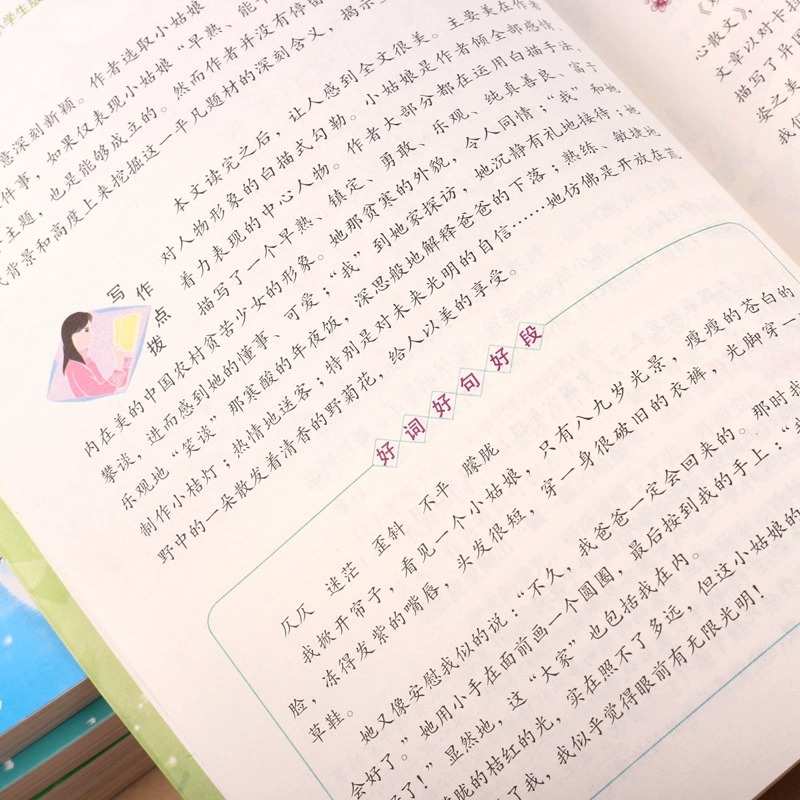 小学生版
意深刻新颖。作者选取小姑娘
件事，如果仅表现小姑娘“早熟、能干
主题，也是能够成立的。然而作者并没有停留
背景和高度上来挖掘这一平凡题材的深刻含义，揭示
写作
点
拨
本文读完之后，让人感到全文很美。主要美在作者
对人物形象的白描式勾勒。小姑娘是作者倾全部感情
着力表现的中心人物。作者大部分都在运用白描手法，
描写了一个早熟、镇定、勇敢、乐观、纯真善良、富于
内在美的中国农村贫苦少女的形象。她那贫寒的外貌，令人同情；“我”和她
攀谈，进而感到她的懂事、可爱；“我”到她家探访，她沉静有礼地接待；她
乐观地“笑谈”那寒酸的年夜饭，深思般地解释爸爸的下落；熟练、敏捷地
制作小桔灯；热情地送客；特别是对未来光明的自信……她仿佛是开放在荒
野中的一朵散发着清香的野菊花，给人以美的享受。
好词好句好段
仄仄 迷茫 歪斜 不平 朦胧
我掀开帘子，看见一个小姑娘，只有八九岁光景，瘦瘦的苍白的
脸，冻得发紫的嘴唇，头发很短，穿一身很破旧的衣裤，光脚穿一
草鞋。
她又像安慰我似的说：“不久，我爸爸一定会回来的。那时我
会好了。”她用小手在面前画一个圆圈，最后按到我的手上：“我
了！”显然地，这“大家”也包括我在内。
胧的桔红的光，实在照不了多远，但这小姑娘的
了我，我似乎觉得眼前有无限光明！
心散文，
文章以对卡
描写了异国
姿之美
我们